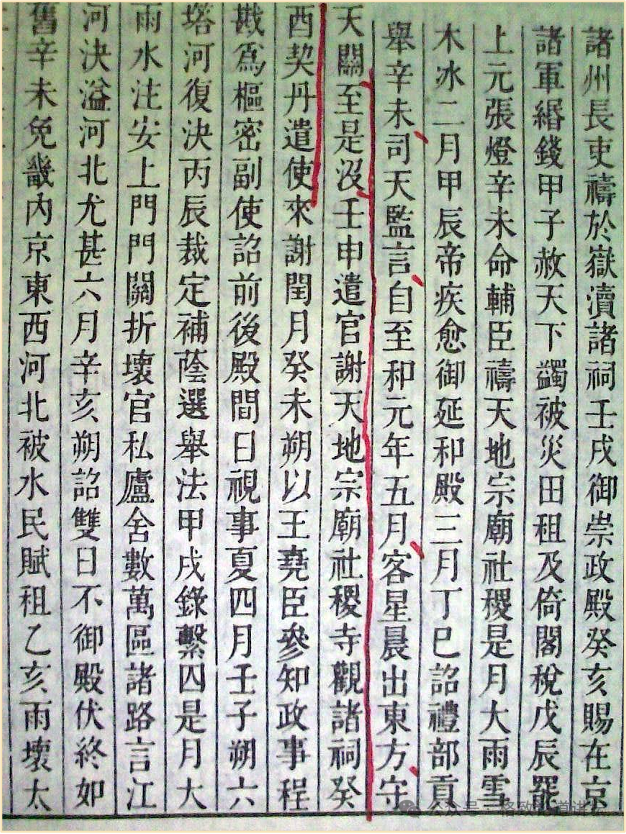 諸州長吏禱於嶽瀆諸祠壬戌御崇政殿癸亥賜在京
諸軍緡錢甲子赦天下蠲被災田租及倚閣稅戊辰罷
上元張燈辛未命輔臣禱天地宗廟社稷是月大雨雪
木冰二月甲辰帝疾愈御延和殿三月丁巳詔禮部貢
舉辛未司天監言自至和元年五月客星晨出東方守
天關至是沒壬申遣官謝天地宗廟社稷寺觀諸祠癸
酉契丹遣使來謝閏月癸未朔以王堯臣參知政事程
戡爲樞密副使詔前後殿間日視事夏四月壬子朔六
塔河復決丙辰裁定補蔭選舉法甲戌錄繫囚是月大
雨水注安上門門關折壞官私廬舍數萬區諸路言江
河決溢河北尤甚六月辛亥朔詔雙日不御殿伏終如
舊辛未免畿內京東西河北被水民賦租乙亥雨壞太
公众号